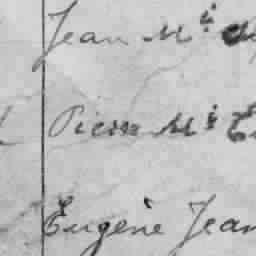 Jean Mie
Pierre Mie
Eugène Jean